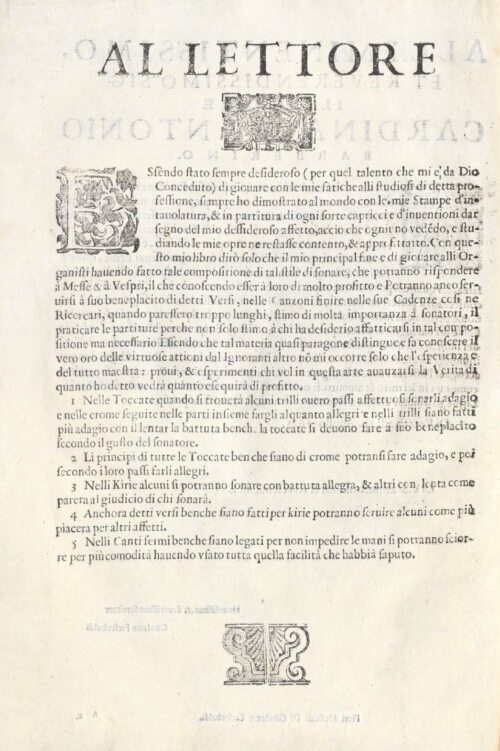 AL LETTORE
ESsendo stato sempre desideroso (per quel talento che mi è da Dio
Conceduto) di giouare con le mie fatiche alli studiosi di detta pro-
fessione, sempre ho dimostrato al mondo con le mie Stampe d'in-
tauolatura, & in partitura di ogni sorte capricci e d'inuentioni dar
segno del mio dessideroso affetto, accio che ognuno vedédo, e stu-
diando le mie opre ne restasse contento, & approfittato. Con que-
sto mio libro dirò solo che il mio principal fine e di giouare alli Or-
ganisti hauendo fatto tale compositione di tal stile di sonare, che potranno rispondere
à Messe & à Vespri, il che conoscendo esser à loro di molto profitto e Potranno anco ser-
uirsi à suo beneplacito di detti Versi, nelle Canzoni finire nelle sue Cadenze cosi ne
Ricercari, quando paressero troppo lunghi, stimo di molta importanza à sonatori, il
praticare le partiture perche non solo stimo à chi ha desiderio affatticarsi in tal compo-
sitione ma necessario Essendo che tal materia quasi paragone distingue e fa conoscere il
vero oro delle virtuose attioni dal Ignoranti altro nó mi occorre solo che l'esperienza e
del tutto maestra: proui, & esperimenti chi vol in questa arte auauzarsi la Verita di
quanto ho detto vedrà quanto esequirà di profitto.
1 Nelle Toccate quando si trouerà alcuni trilli ouero passi affettuosi sonarli adagio
e nelle crome seguite nelle parti insieme fargli alquanto allegri e nelli trilli siano fatti
più adagio con il lentar la battuta bench. la toccate si deuono fare à suo beneplacito
secondo il gusto del sonatore.
2 Li principi di tutte le Toccate benche siano di crome potransi fare adagio, e poi
secondo i loro passi farli allegri.
3 Nelli Kirie alcuni si potranno sonare con battuta allegra, & altri con lenta come
parera al giudicio di chi sonarà.
4 Anchora detti versi benche siano fatti per kirie potranno seruire alcuni come più
piacera per altri affetti.
5 Nelli Canti fermi benche siano legati per non impedire le mani si potranno scior-
re per più comodità hauendo vsato tutta quella facilità che habbia saputo.